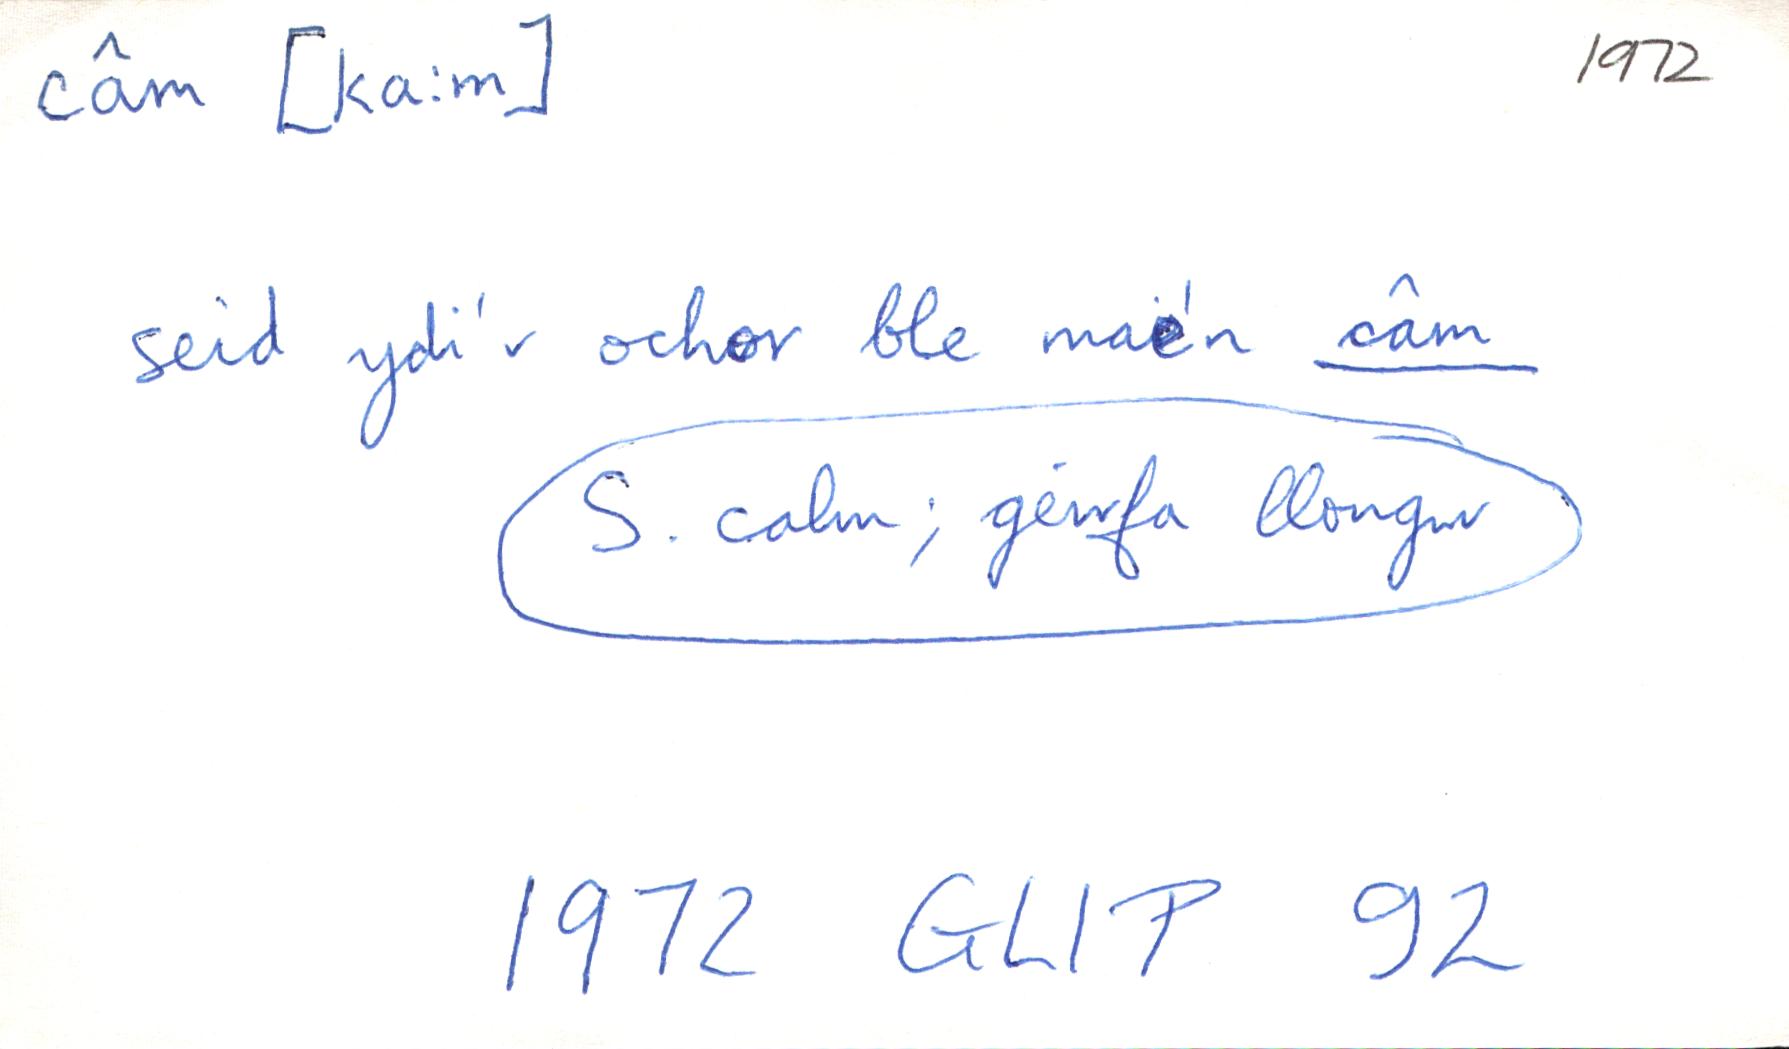 câm [ka:m] 1972
seid ydi'r ochor ble mae'n câm
S. calm; geirfa llongwr
1972 GLlP 92